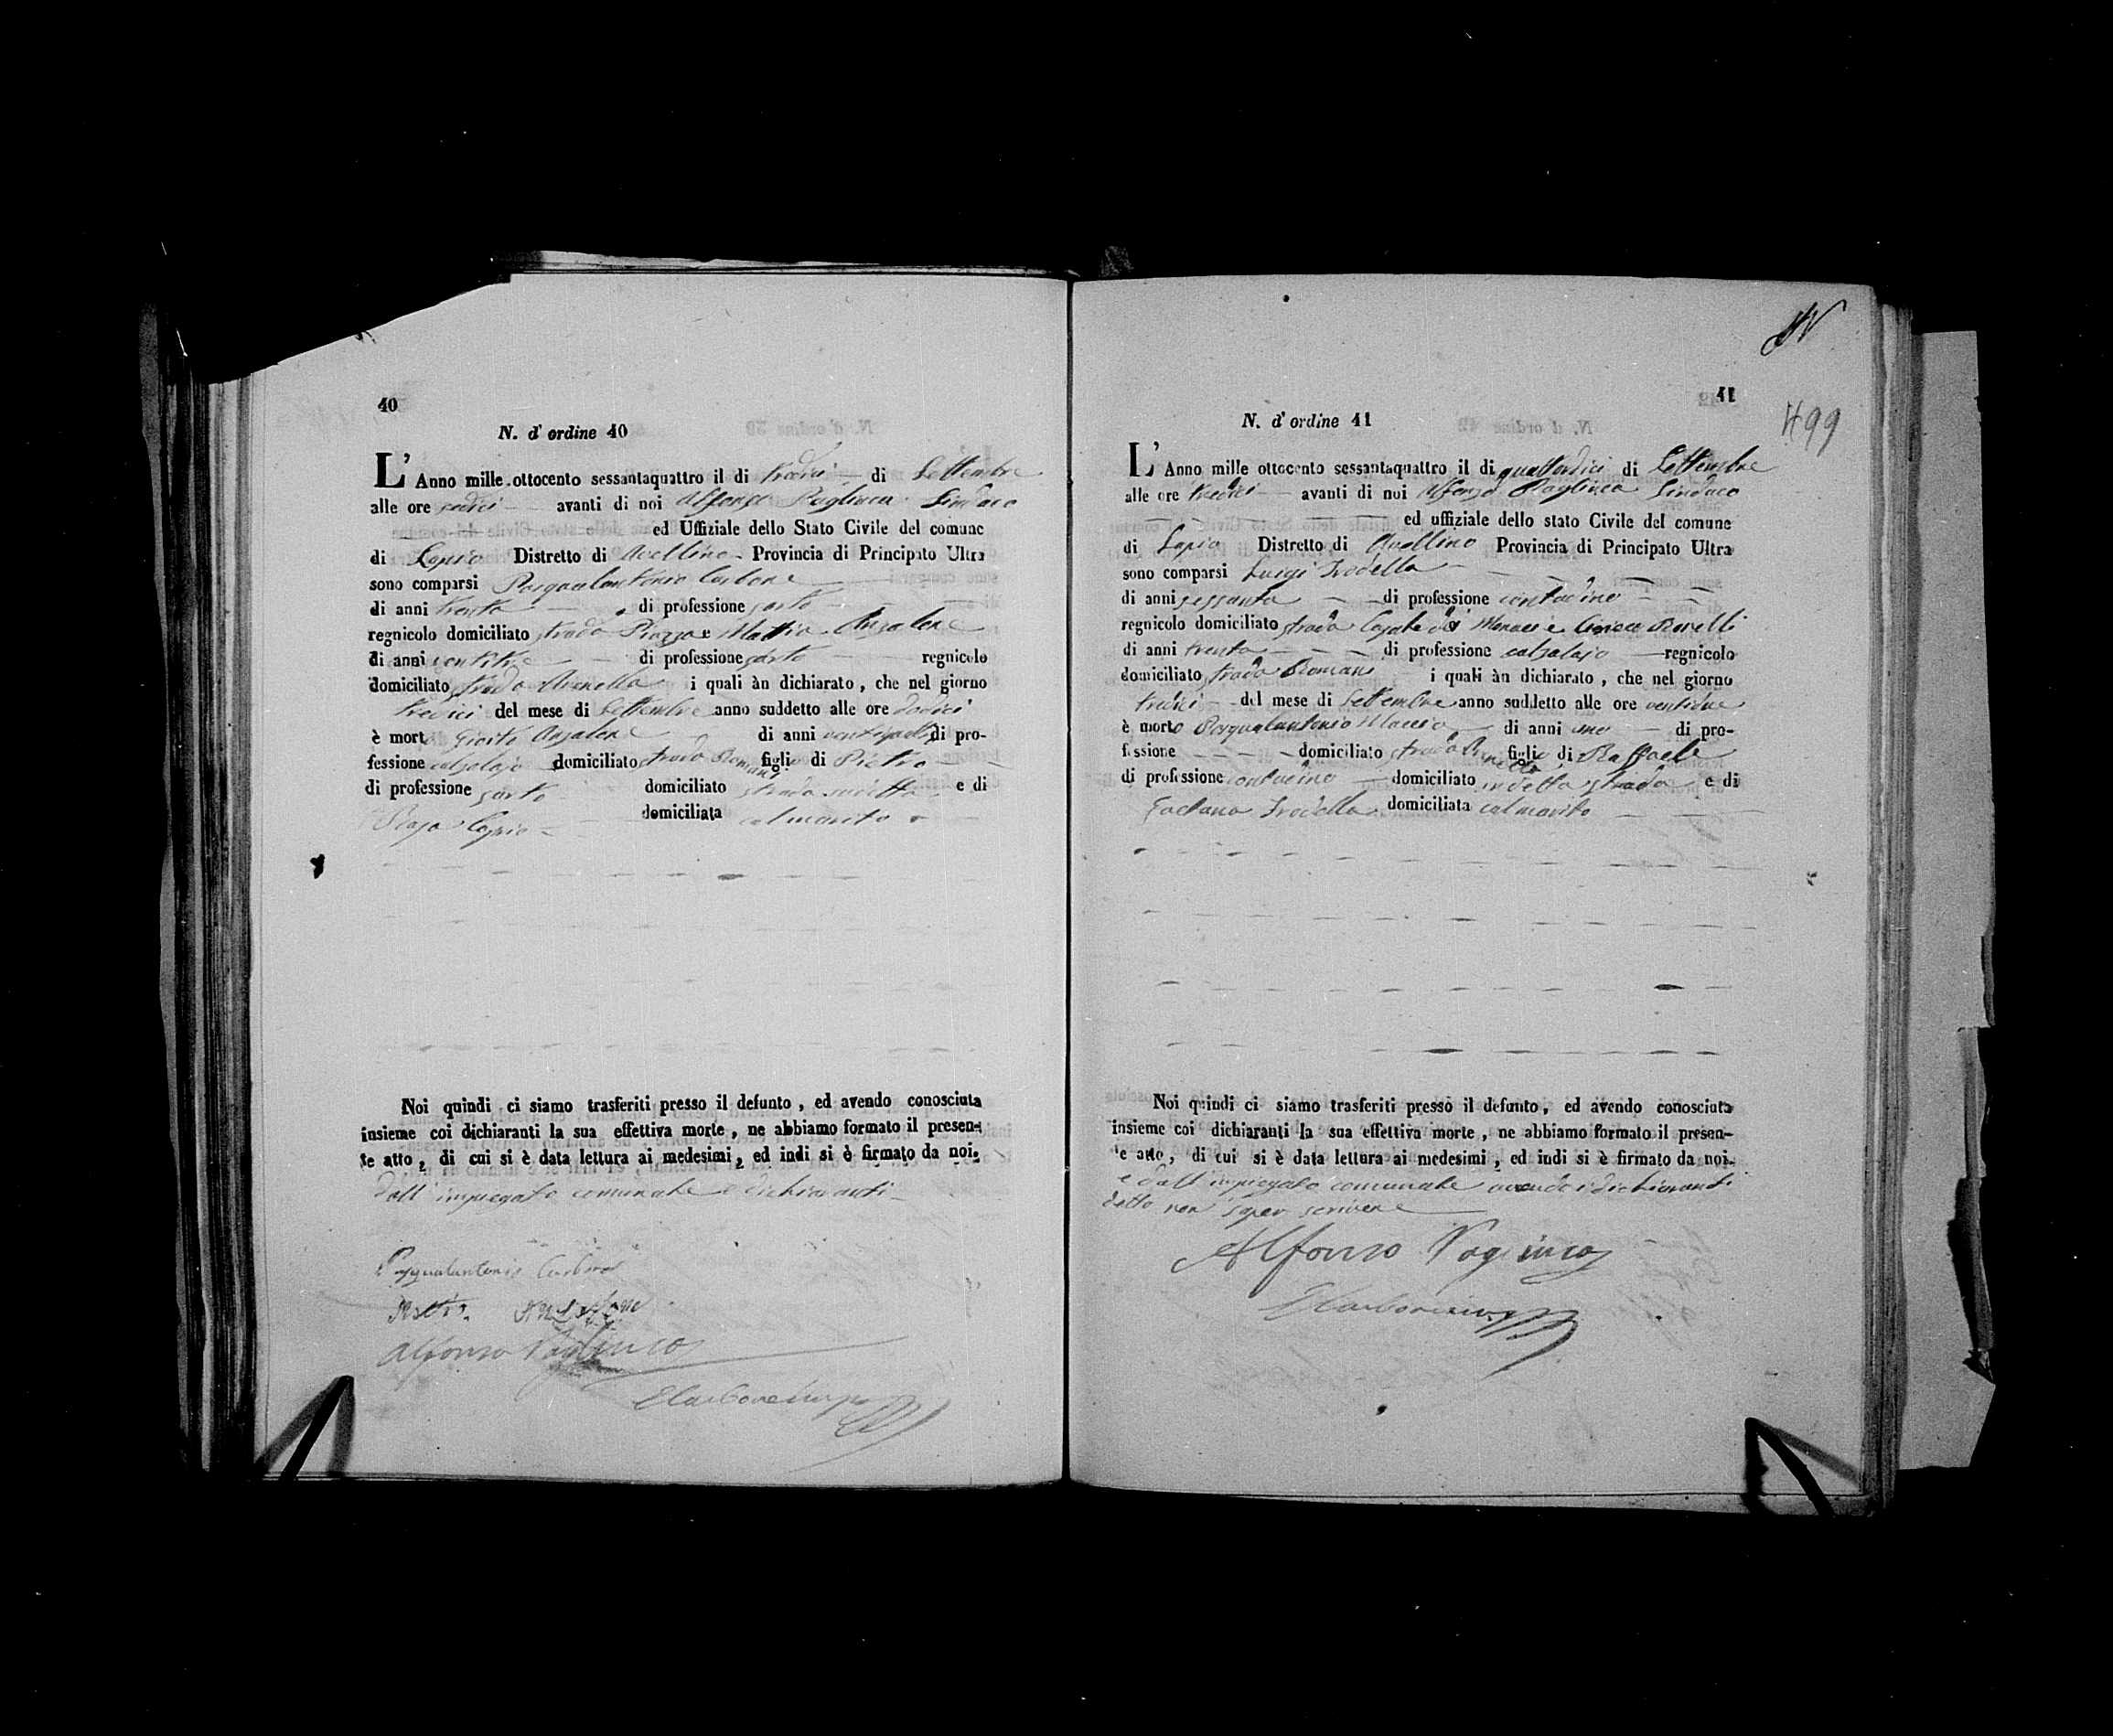 40
N. d' ordine 40
L' Anno mille ottocento sessantaquattro il di tredici di Settembre
alle ore sedici avanti di noi Alfonso Pagliuca Sindaco
ed Uffiziale dello Stato Civile del comune
di Lapio Distretto di Avellino Provincia di Principato Ultra
sono comparsi Pasqualantonio Carbone
di anni trenta di professione sarto
regnicolo domiciliato strada Piazza e Mattia Anzalone
di anni ventitre di professione sarto regnicolo
domiciliato strada i quali àn dichiarato, che nel giorno
tredici del mese di Settembre anno suddetto alle ore dodici
è morto Anzalone di anni di pro-
fessione calzolajo domiciliato strada Romani figlio di Pietro
di professione sarto domiciliato strada sudetta e di
domiciliata col marito
Noi quindi ci siamo trasferiti presso il defunto, ed avendo conosciuta
insieme coi dichiaranti la sua effettiva morte, ne abbiamo formato il presen-
te atto, di cui si è data lettura ai medesimi, ed indi si è firmato da noi.
dall' impiegato comunale e dichiaranti
Pasqualantonio Carbone
Mattia Anzalone
Alfonso Pagliuca
41
499
N. d' ordine 41
L' Anno mille ottocento sessantaquattro il di quattordici di Settembre
alle ore tredici avanti di noi Alfonso Pagliuca Sindaco
ed uffiziale dello stato Civile del comune
di Lapio Distretto di Avellino Provincia di Principato Ultra
sono comparsi Luigi Trodella
di anni sessanta di professione contadino
regnicolo domiciliato strada Casale e
di anni trenta di professione calzolajo regnicolo
domiciliato strada Romani i quali àn dichiarato, che nel giorno
tredici del mese di Settembre anno suddetto alle ore ventidue
è morto Pasqualantonio di anni uno di pro-
fessione domiciliato strada figlio di Raffaele
di professione contadino domiciliato in detta strada e di
Gaetana Trodella domiciliata col marito
Noi quindi ci siamo trasferiti presso il defunto, ed avendo conosciuta
insieme coi dichiaranti la sua effettiva morte, ne abbiamo formato il presen-
te atto, di cui si è data lettura ai medesimi, ed indi si è firmato da noi.
e dall' impiegato comunale avendo i dichiaranti
detto non saper scrivere
Alfonso Pagliuca